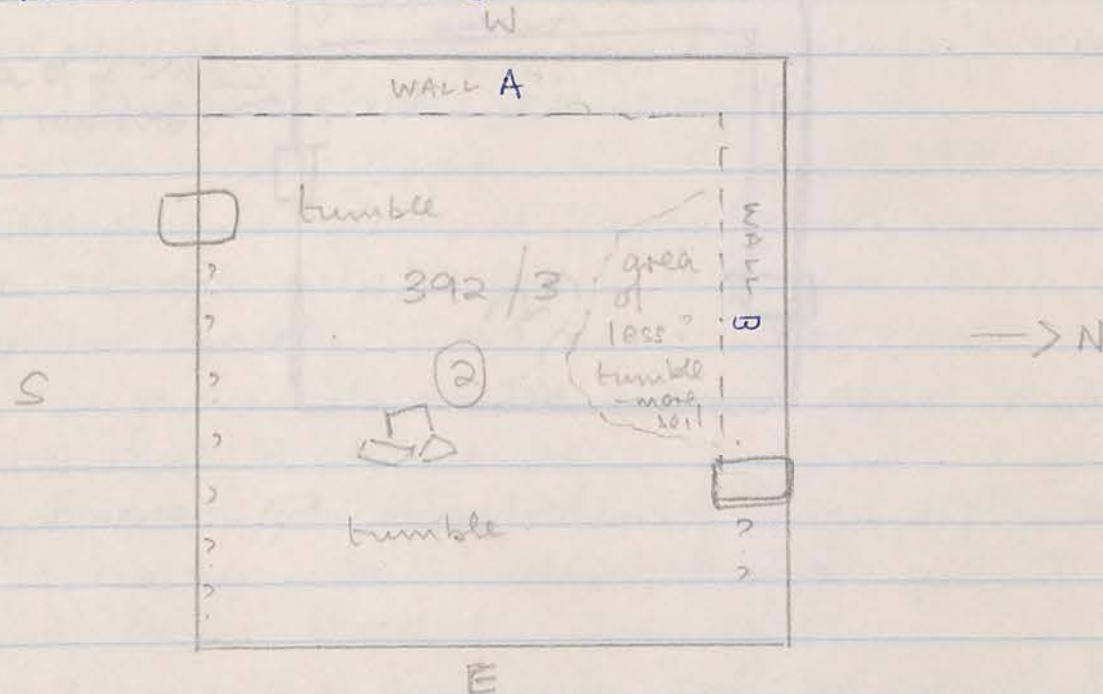 W
WALL A
tumble
392/3
area
of
less
tumble
-more
soil
WALL B
?
?
?
?
?
?
?
S
→ N
2
tumble
?
?
E